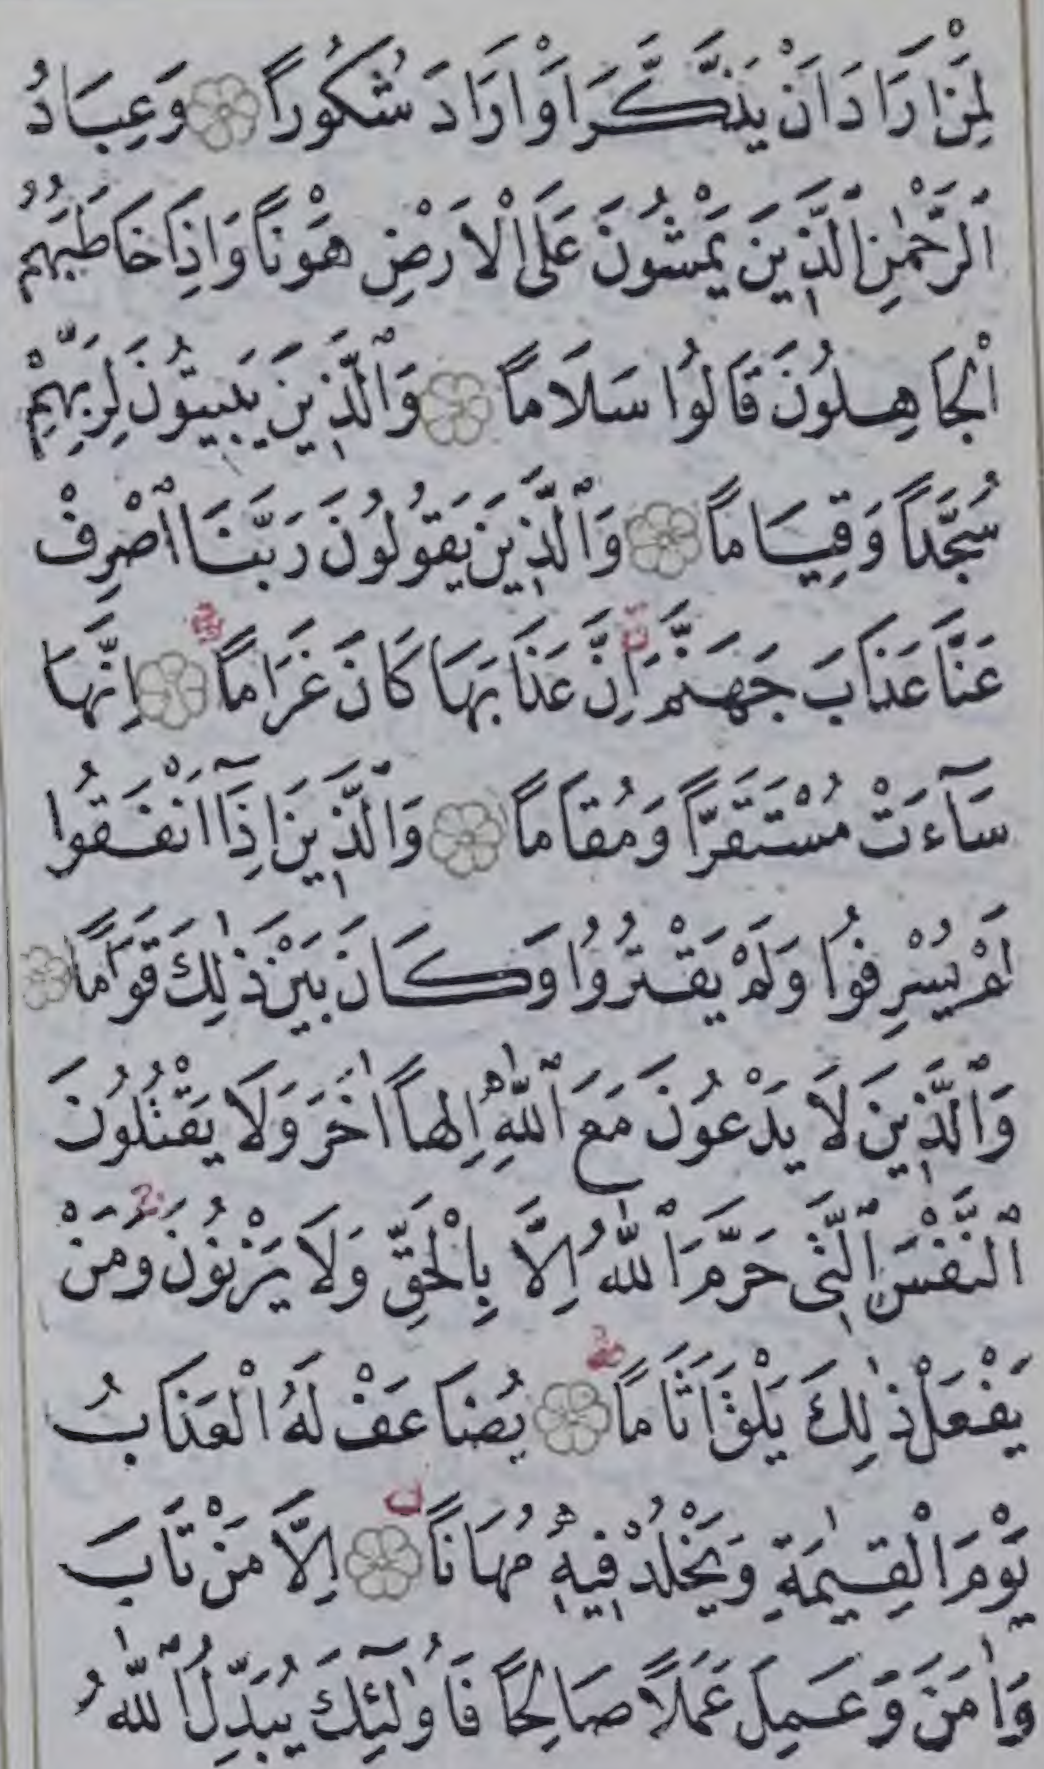 لِمَنْ اَرَادَ اَنْ يَذَّكَّرَ اَوْ اَرَادَ شُكُورًا ۝ وَعِبَادُ
ٱلرَّحْمٰنِ ٱلَّذِينَ يَمْشُونَ عَلَى الْاَرْضِ هَوْنًا وَاِذَا خَاطَبَهُمُ
الْجَاهِلُونَ قَالُوا سَلَامًا ۝ وَٱلَّذِينَ يَبِيتُونَ لِرَبِّهِمْ
سُجَّدًا وَقِيَامًا ۝ وَٱلَّذِينَ يَقُولُونَ رَبَّنَا ٱصْرِفْ
عَنَّا عَذَابَ جَهَنَّمَ اِنَّ عَذَابَهَا كَانَ غَرَامًا ۝ اِنَّهَا
سَآءَتْ مُسْتَقَرًّا وَمُقَامًا ۝ وَٱلَّذِينَ اِذَآ اَنْفَقُوا
لَمْ يُسْرِفُوا وَلَمْ يَقْتُرُوا وَكَانَ بَيْنَ ذٰلِكَ قَوَامًا ۝
وَٱلَّذِينَ لَا يَدْعُونَ مَعَ ٱللّٰهِ اِلٰهًا اٰخَرَ وَلَا يَقْتُلُونَ
ٱلنَّفْسَ ٱلَّتِى حَرَّمَ ٱللّٰهُ اِلَّا بِالْحَقِّ وَلَا يَزْنُونَ وَمَنْ
يَفْعَلْ ذٰلِكَ يَلْقَ اَثَامًا ۝ يُضَاعَفْ لَهُ الْعَذَابُ
يَوْمَ الْقِيٰمَةِ وَيَخْلُدْ فِيهِ مُهَانًا ۝ اِلَّا مَنْ تَابَ
وَاٰمَنَ وَعَمِلَ عَمَلًا صَالِحًا فَاُولٰٓئِكَ يُبَدِّلُ ٱللّٰهُ